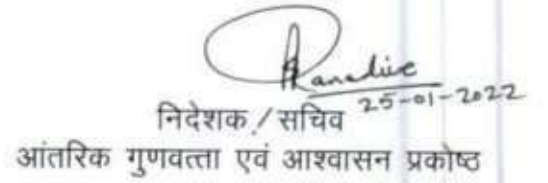 25-01-2022
निदेशक / सचिव
आंतरिक गुणवत्ता एवं आश्वासन प्रकोष्ठ